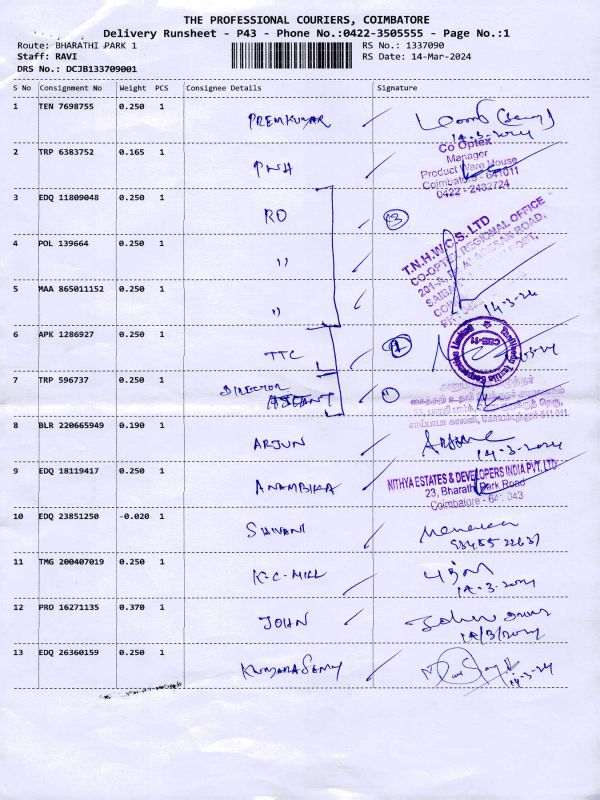 THE PROFESSIONAL COURIERS, COIMBATORE
Delivery Runsheet - P43 - Phone No.:0422-3505555 - Page No.:1
Route: BHARATHI PARK 1 RS No.: 1337090
Staff: RAVI RS Date: 14-Mar-2024
DRS No.: DCJB133709001
S No Consignment No Weight PCS Consignee Details Signature
1 TEN 7698755 0.250 1 PREMKUMAR
14-3-2024
2 TRP 6383752 0.165 1 PNH
Co Optex
Manager
Product Ware House
Coimbatore - 641011
0422 - 2432724
3 EDQ 11809048 0.250 1 RO 3
T.N.H.W.C.S. LTD
CO-OPTEX REGIONAL OFFICE
4 POL 139664 0.250 1 "
5 MAA 865011152 0.250 1 "
14-3-24
6 APK 1286927 0.250 1 TTC 1
7 TRP 596737 0.250 1 DIRECTOR
8 BLR 220665949 0.190 1 ARJUN
14-3-2024
9 EDQ 18119417 0.250 1 ANAMBIKA
NITHYA ESTATES & DEVELOPERS INDIA PVT. LTD.
23, Bharathi Park Road
Coimbatore - 641 043
10 EDQ 23851250 -0.020 1 SHIVANI
11 TMG 200407019 0.250 1 K-C-MILL
14-3-2024
12 PRO 16271135 0.370 1 JOHN
14/3/2024
13 EDQ 26360159 0.250 1 KUMARASAMY
14-3-24